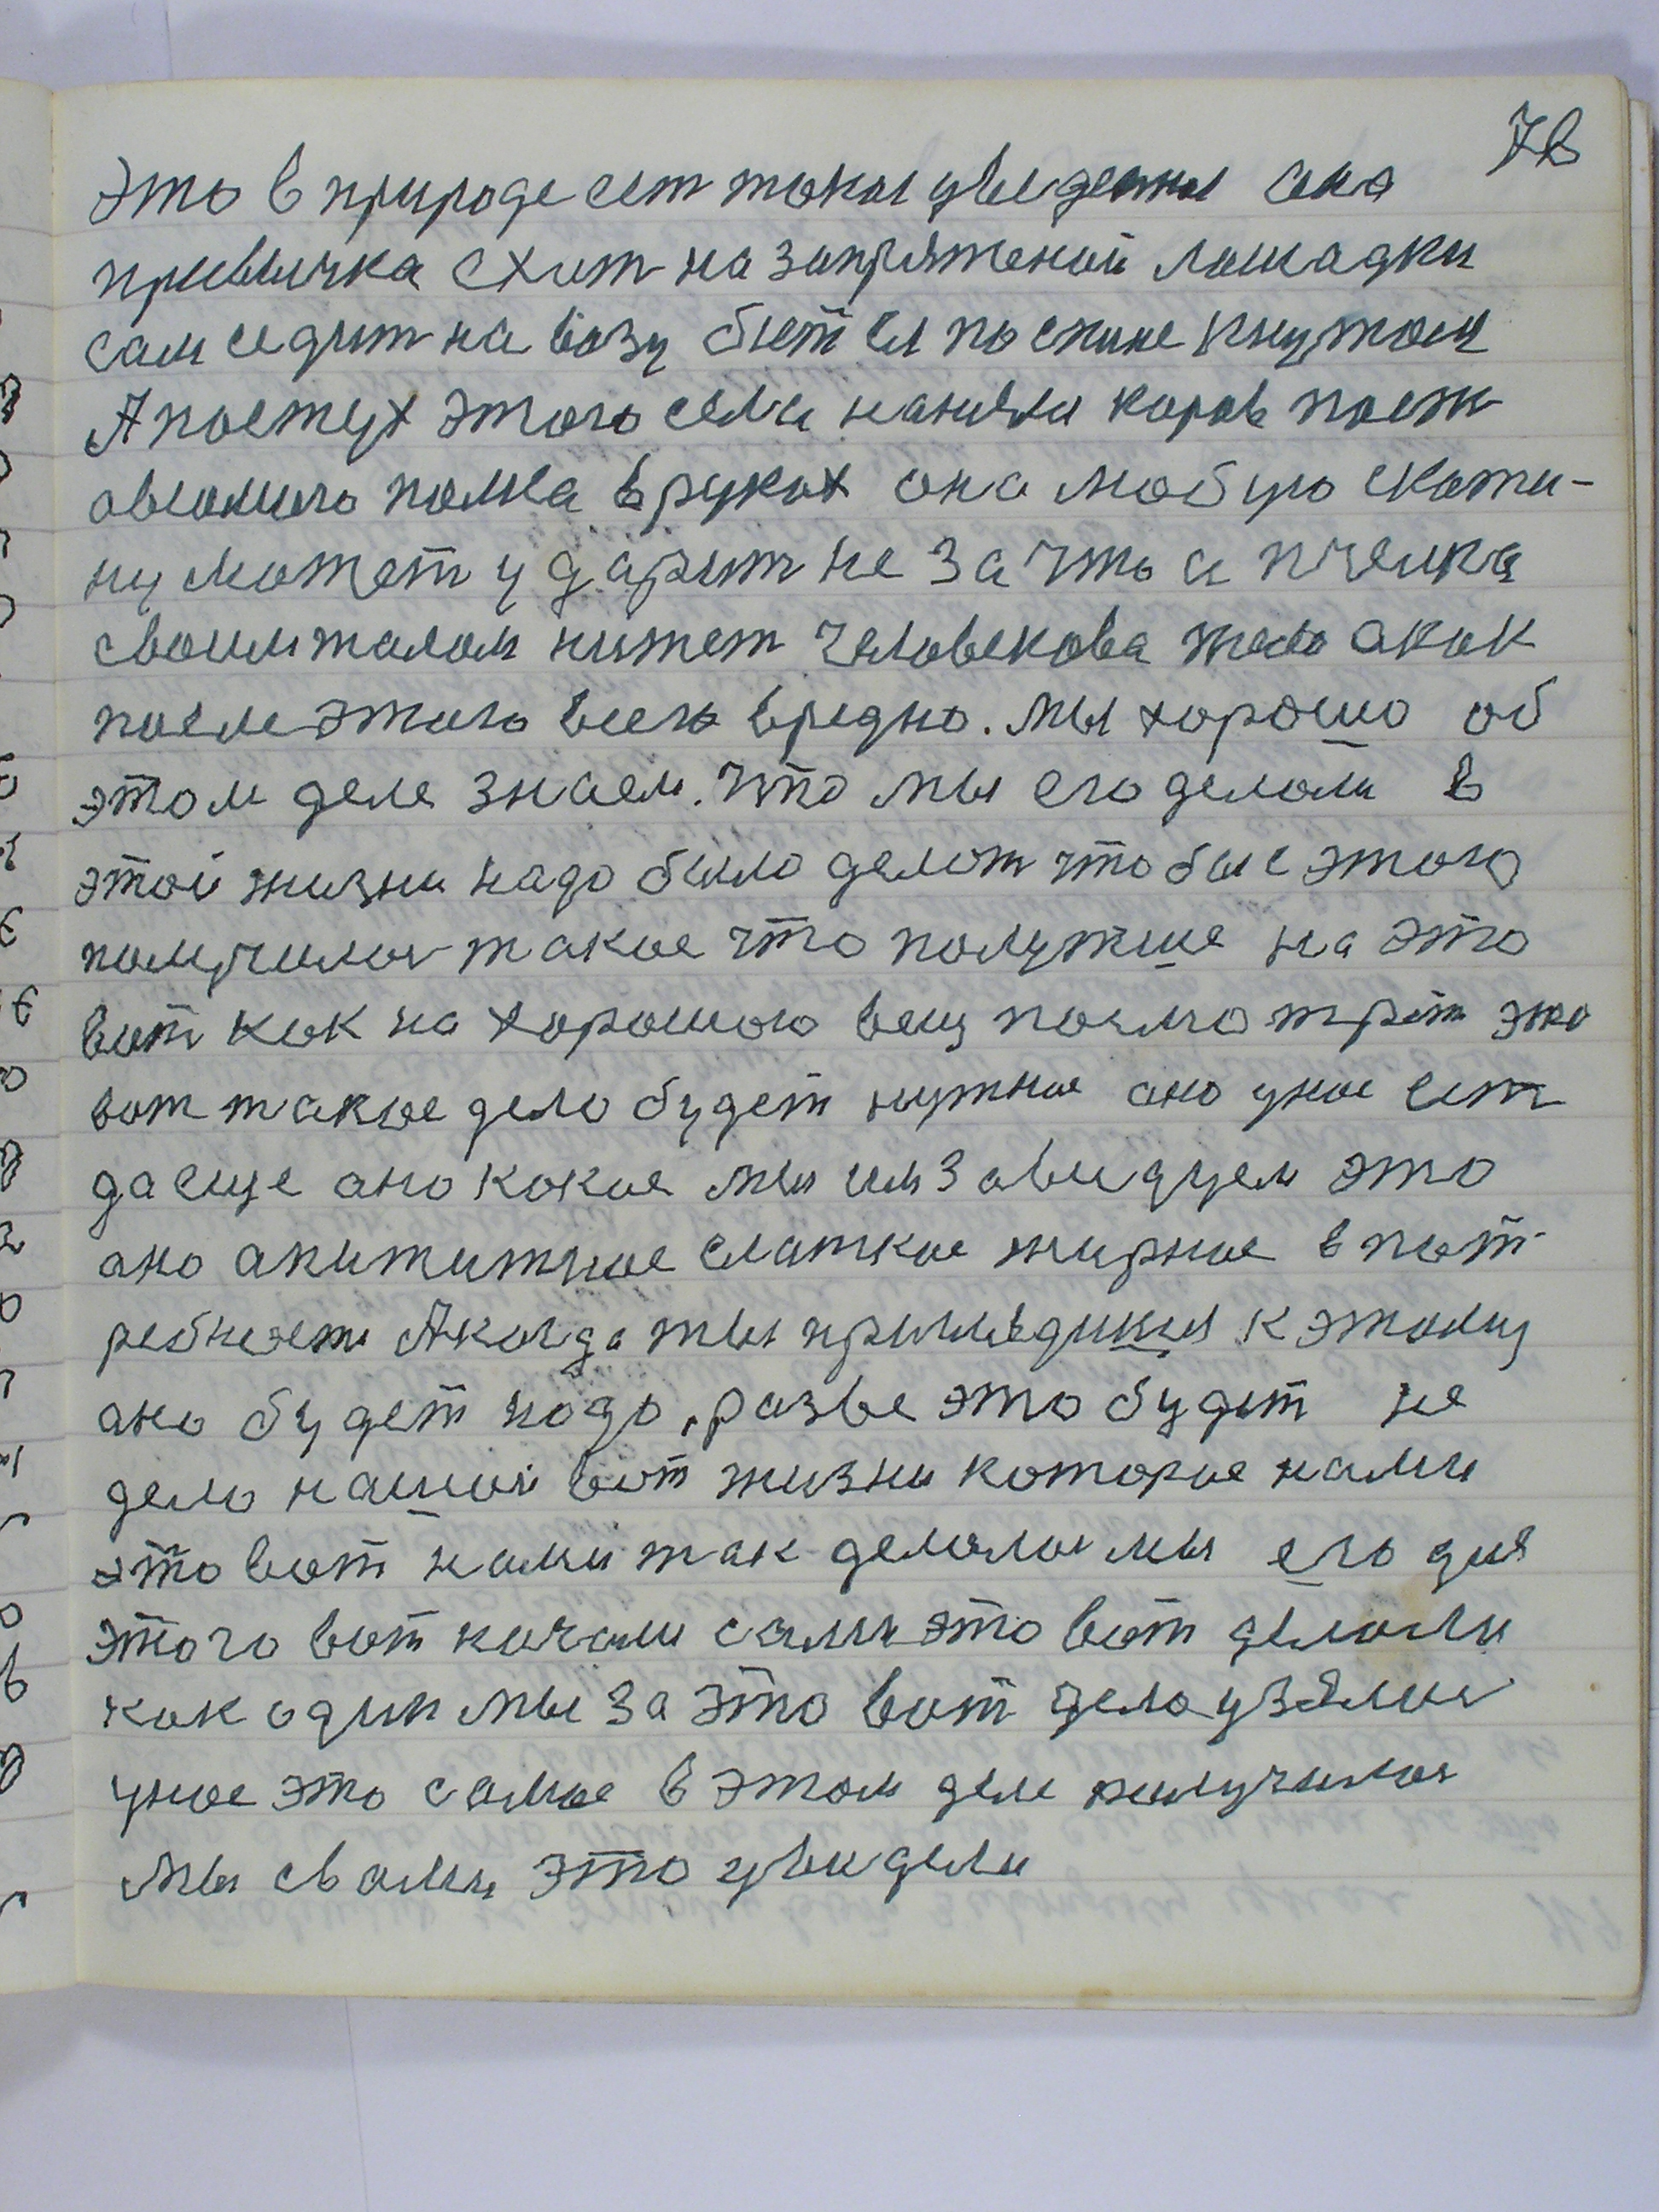 78
Это в природе ест токои уведеные ана
привычка ехит на запряженой лошадки
сам седит на возу бьет ея по спине кнутом
А постух этого села наняли коров пост
овеломго полка в руках она любую скоти-
ну может ударит не за что а пчелка
своим жалом нижет человекова тело акак
после этого всего вредно. мы хорошо об
этом деле знаем. Что мы его делали в
этой жизни надо было делот что бы с этого
получилос такое что получше на это
вот как на хорошого вещ посмотрет это
вот такое дело будет нужное ано уное ест
да еще ано какое мы им завидуем это
ано апитижное слаткое жирное в пот-
ребности А когда ты примедишся к этому
ано будет нодо, разве это будет не
дело нашой вот жизни которое нами
это вот нами так делолос мы его для
этого вот начали сами это вот делоли
как один мы за это вот дело узялис
уное это самое в этом деле получилос
мы свами это увидели